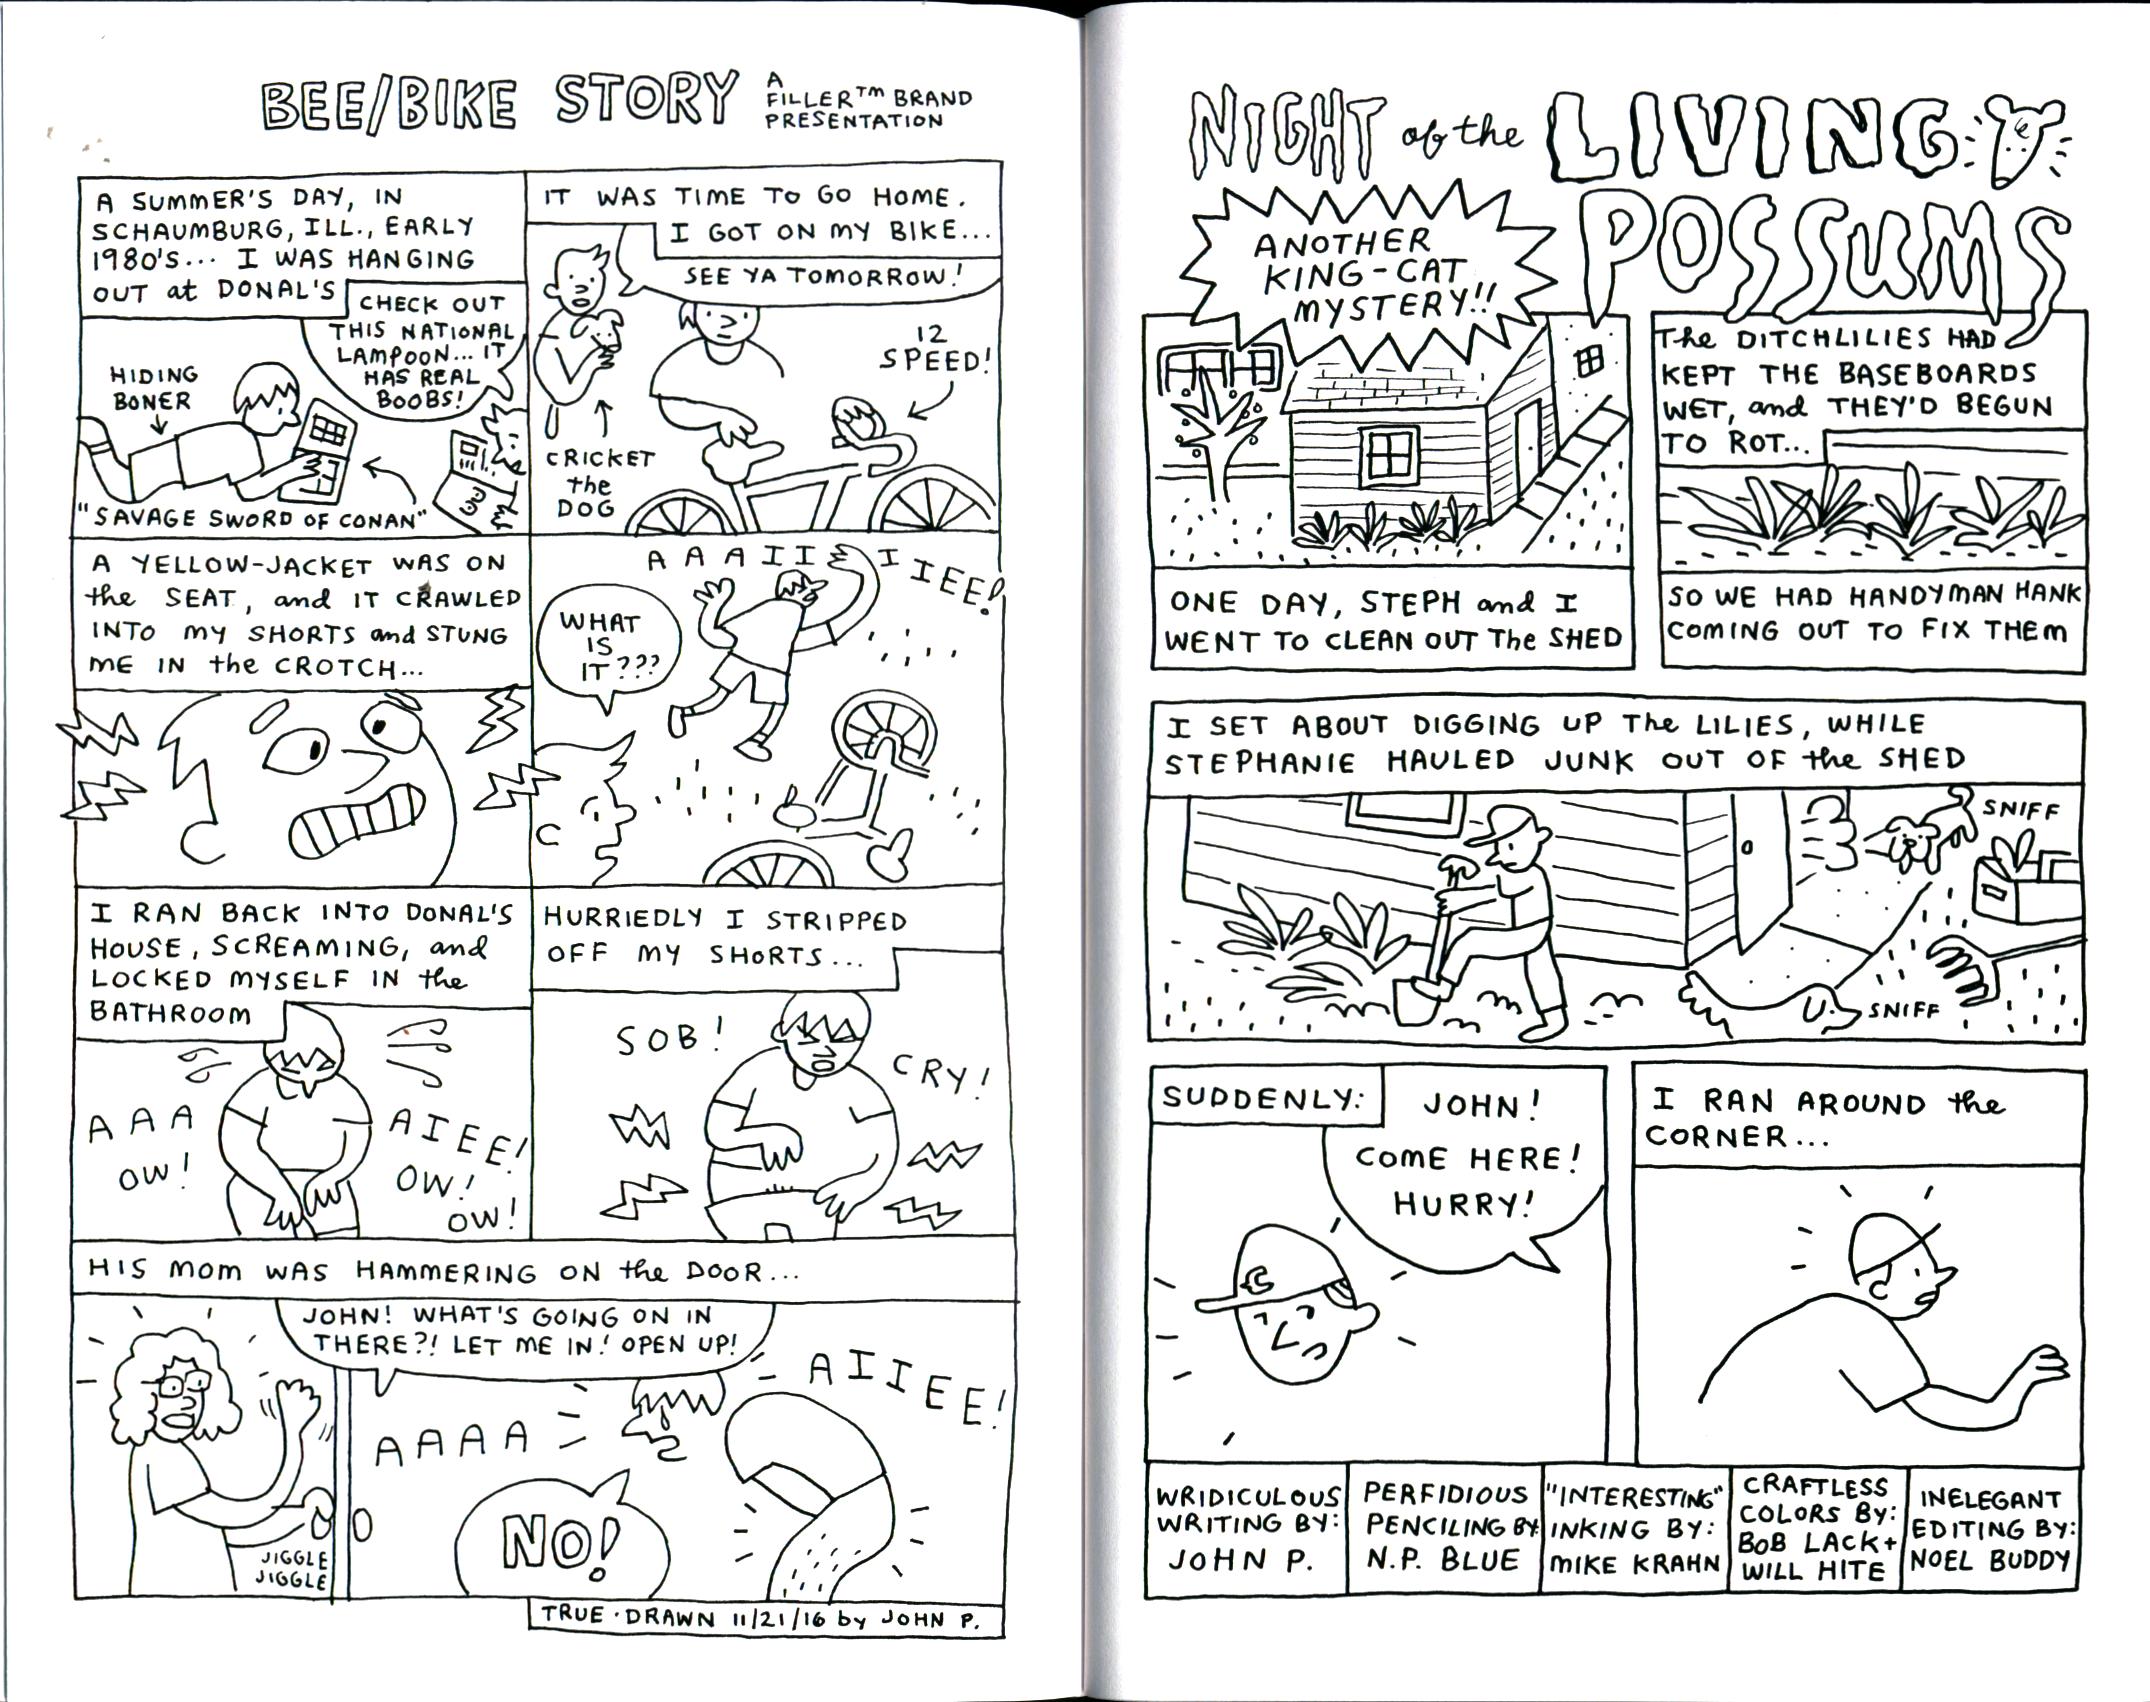 BEE/BIKE STORY
A
FILLER™ BRAND
PRESENTATION
A SUMMER'S DAY, IN
SCHAUMBURG, ILL., EARLY
1980'S... I WAS HANGING
OUT at DONAL'S
CHECK OUT
THIS NATIONAL
LAMPOON... IT
HAS REAL
BOOBS!
HIDING
BONER
"SAVAGE SWORD OF CONAN"
IT WAS TIME TO GO HOME.
I GOT ON MY BIKE...
SEE YA TOMORROW!
12
SPEED!
CRICKET
the
DOG
A YELLOW-JACKET WAS ON
the SEAT, and IT CRAWLED
INTO MY SHORTS and STUNG
ME IN the CROTCH...
AAAIIIIIEE!
WHAT
IS
IT???
I RAN BACK INTO DONAL'S
HOUSE, SCREAMING, and
LOCKED MYSELF IN the
BATHROOM
AAA
OW!
AIEE!
OW!
OW!
HURRIEDLY I STRIPPED
OFF MY SHORTS...
SOB!
CRY!
HIS MOM WAS HAMMERING ON the DOOR...
JOHN! WHAT'S GOING ON IN
THERE?! LET ME IN! OPEN UP!
JIGGLE
JIGGLE
AAAA
AIIEE!
NO!
TRUE · DRAWN 11/21/16 by JOHN P.
NIGHT of the LIVING
POSSUMS
ANOTHER
KING-CAT
MYSTERY!!
ONE DAY, STEPH and I
WENT TO CLEAN OUT The SHED
The DITCHLILIES HAD
KEPT THE BASEBOARDS
WET, and THEY'D BEGUN
TO ROT...
SO WE HAD HANDYMAN HANK
COMING OUT TO FIX THEM
I SET ABOUT DIGGING UP The LILIES, WHILE
STEPHANIE HAULED JUNK OUT OF the SHED
SNIFF
SNIFF
SUDDENLY:
JOHN!
COME HERE!
HURRY!
C
I RAN AROUND the
CORNER...
WRIDICULOUS
WRITING BY:
JOHN P.
PERFIDIOUS
PENCILING BY
N.P. BLUE
"INTERESTING"
INKING BY:
MIKE KRAHN
CRAFTLESS
COLORS BY:
BOB LACK +
WILL HITE
INELEGANT
EDITING BY:
NOEL BUDDY